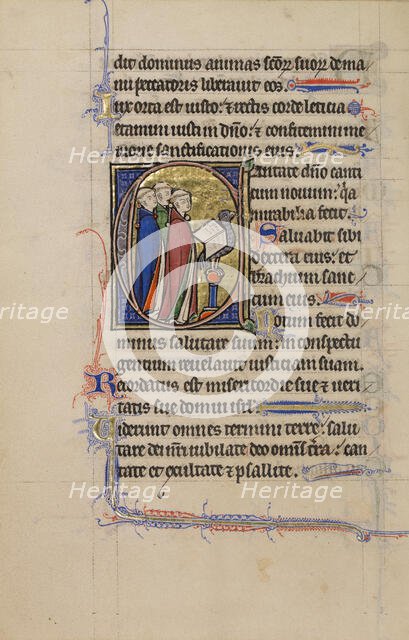 dit dominus animas scōꝝ suoꝝ de ma
nu peccatoris liberavit eos.
Lux orta est iusto: ⁊ rectis corde leticia
Letamini iusti in dño: ⁊ confitemini me
morie sanctificationis eius.
Cantate dño canti
cum novum: q̄a
mirabilia fecit.
Salvabit sibi
dextera eius: et
brachium sanc
tum eius.
Notum fecit do
minus salutare suum: in conspectu
gentium revelavit iusticiam suam.
Recordatus est misericordie sue ⁊ veri
tatis sue domui isrł.
Viderunt omnes termini terre: salu
tare dei nr̄i
iubilate deo omīs t̄ra: can
tate et exultate ⁊ psallite.
Heritage
Images
Heritage
Images
Heritage
Images
Heritage
Images
Heritage
Images